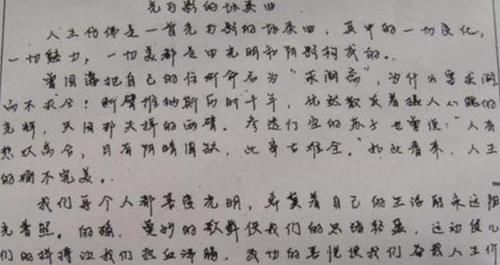 光与影的协奏曲
人生仿佛是一首光与影的协奏曲，其中的一切变化，
一切魅力，一切美都是由光明和阴影构成的。
曾国藩把自己的住所命名为“求阙斋”，为什么要求阙
而不求全！断臂维纳斯历时千年，依然散发着摄人心魄的
光辉，只因那失掉的两臂。参透们空的苏子也曾说：“人有
悲欢离合，月有阴晴圆缺，此事古难全。”如此看来，人生
的确不完美。
我们每个人都喜爱光明，希冀着自己的生活能永远阳
光普照。的确，美妙的歌舞使我们的思绪轻盈，运动健儿
们的拼搏让我们热血沸腾，成功的喜悦使我们